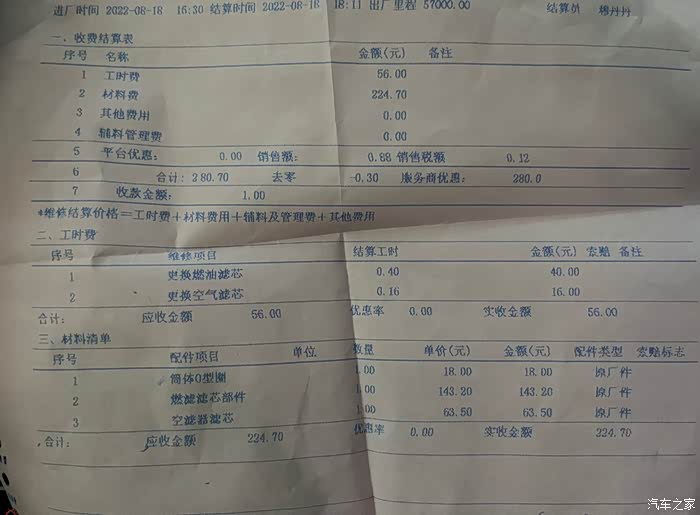 进厂时间 2022-08-18 16:30 结算时间 2022-08-18 18:11 出厂里程 57000.00 结算员 穆丹丹
一、收费结算表
序号 名称 金额(元) 备注
1 工时费 56.00
2 材料费 224.70
3 其他费用 0.00
4 辅料管理费 0.00
5 平台优惠: 0.00 销售额: 0.88 销售税额 0.12
6 合计: 280.70 去零 -0.30 服务商优惠: 280.0
7 收款金额: 1.00
*维修结算价格=工时费+材料费用+辅料及管理费+其他费用
二、工时费
序号 维修项目 结算工时 金额(元) 索赔 备注
1 更换燃油滤芯 0.40 40.00
2 更换空气滤芯 0.16 16.00
合计: 应收金额 56.00 优惠率 0.00 实收金额 56.00
三、材料清单
序号 配件项目 单位 数量 单价(元) 金额(元) 配件类型 索赔标志
1 筒体O型圈 1.00 18.00 18.00 原厂件
2 燃滤滤芯部件 1.00 143.20 143.20 原厂件
3 空滤器滤芯 1.00 63.50 63.50 原厂件
合计: 应收金额 224.70 优惠率 0.00 实收金额 224.70
汽车之家